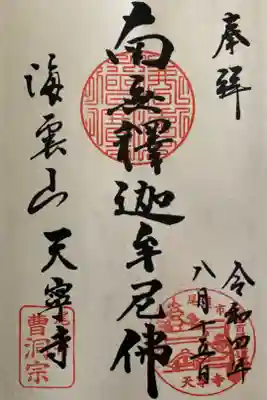 奉拝
令和四年
八月十五日
南無釋迦牟尼佛
海雲山 天寧寺
曹洞宗
尾道市
天寧寺